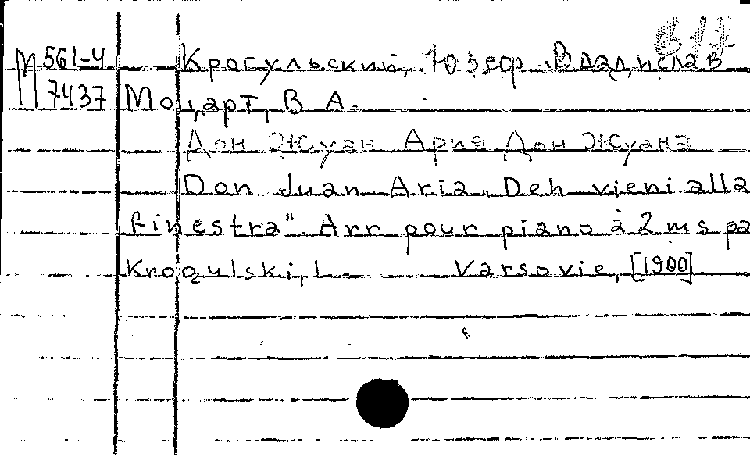 М 561-4 Красульский, Юзеф Владислав
7437 Моцарт, В А.
Дон Жуан Ария Дон Жуана
Don Juan Aria Deh vieni alla
finestra" Arr pour piano à 2 ms pa
Krogulski, I. Varsovie, [1900]